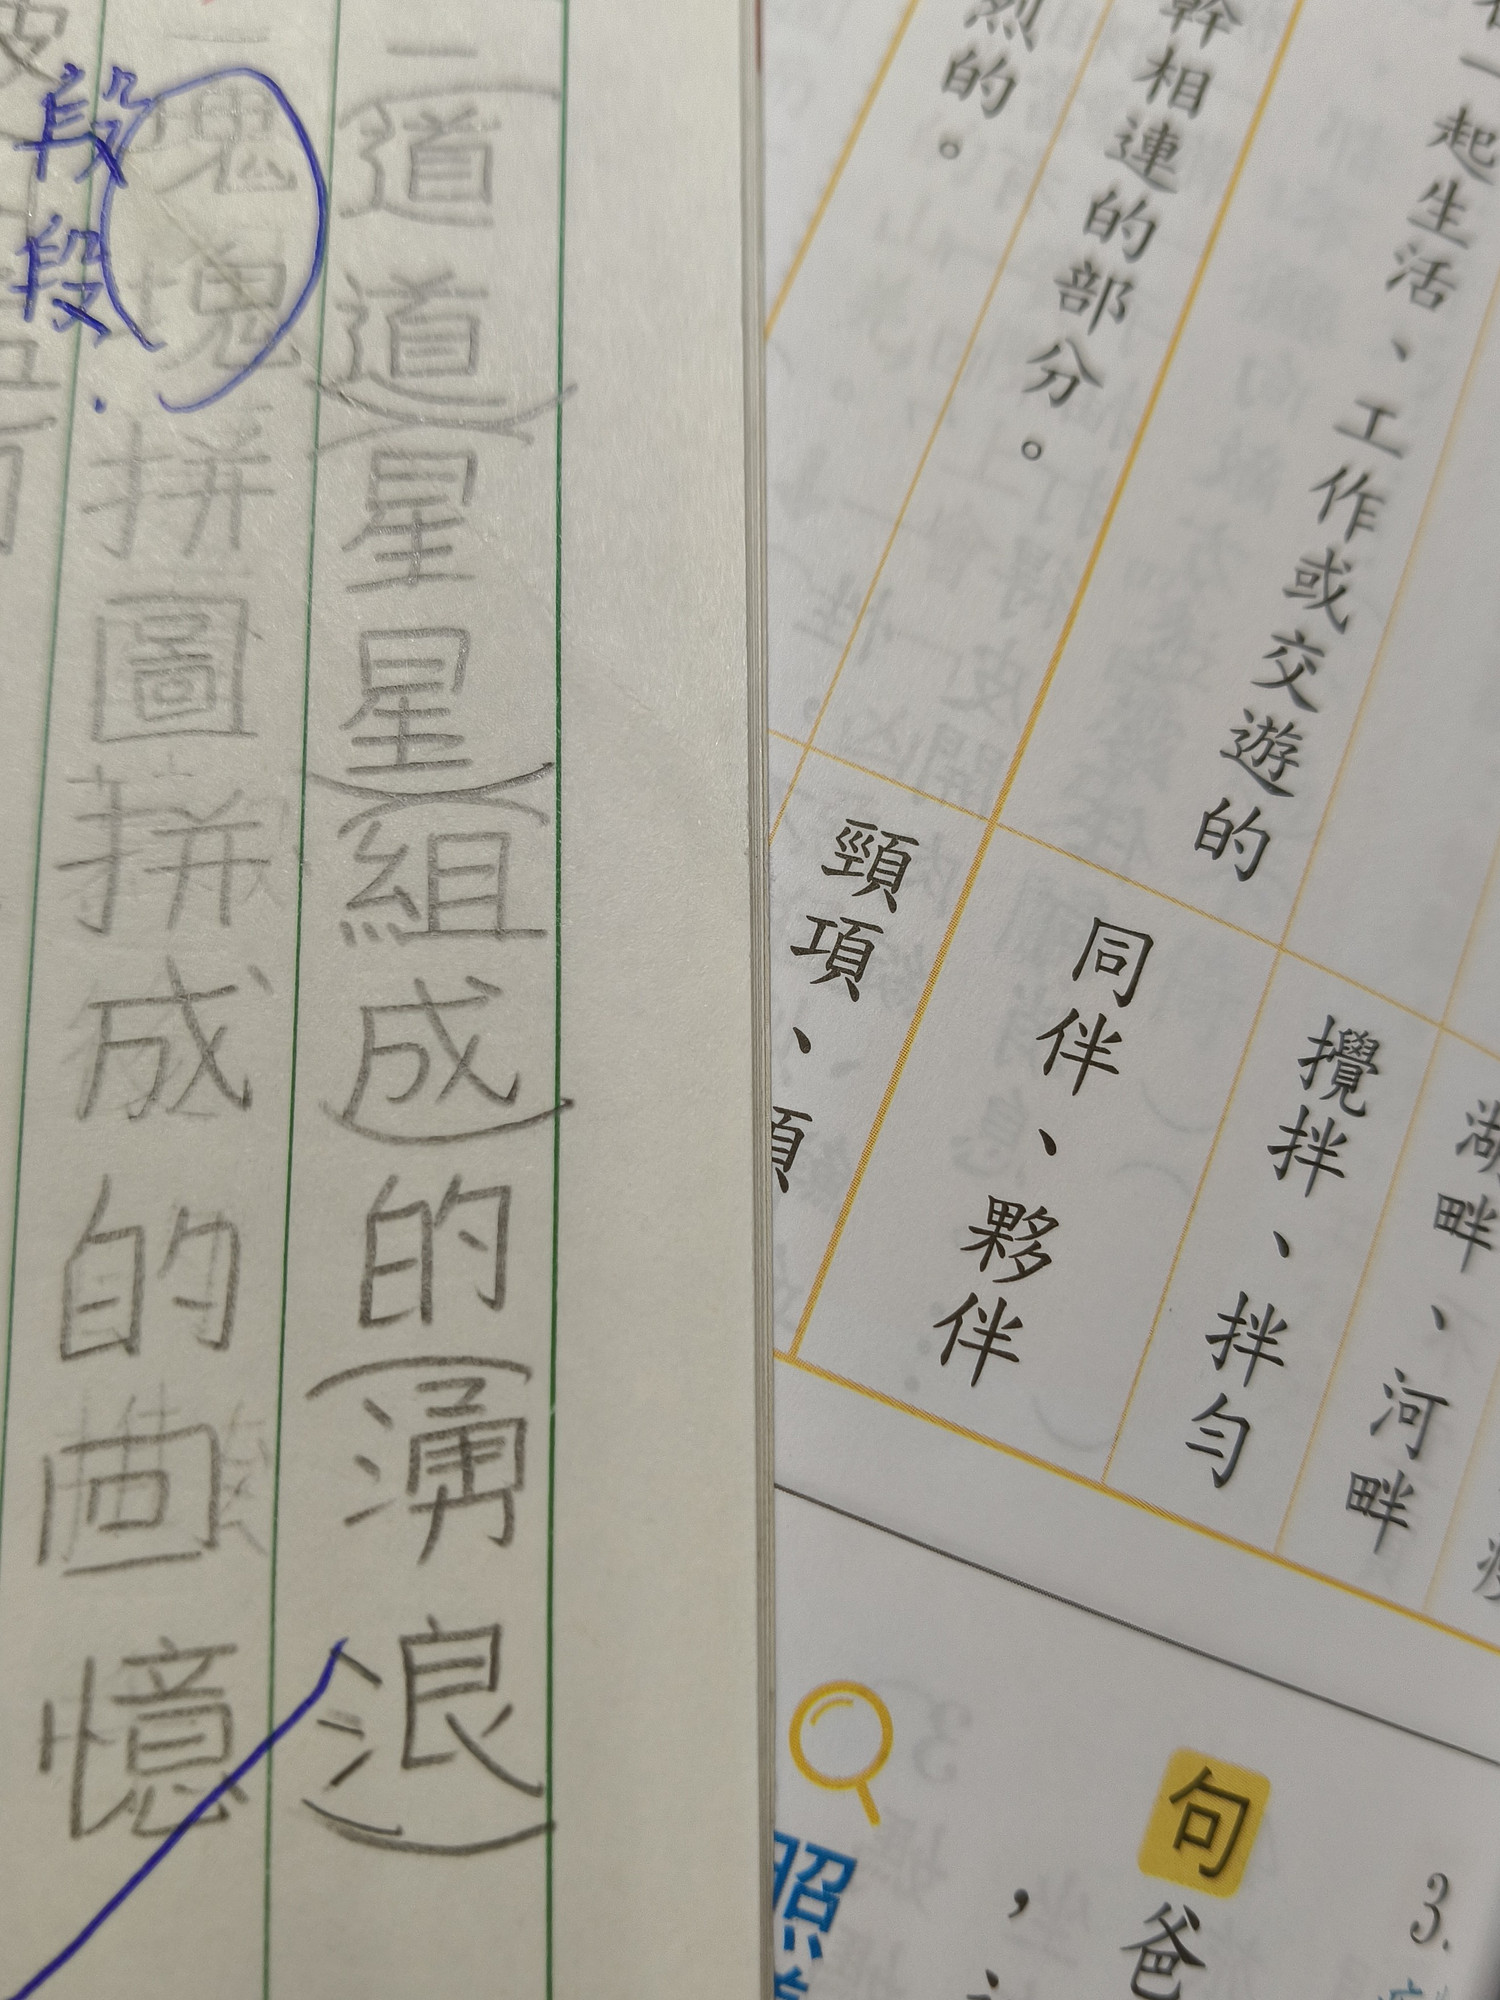 一(道道)(星星)(組成)的(湧浪)
一塊塊拼圖拼成的回憶
段段
一起生活、工作或交遊的
同伴、夥伴
幹相連的部分。
頸項、
烈的。
攪拌、拌勻
湖畔、河畔
3.
句
爸
，
照